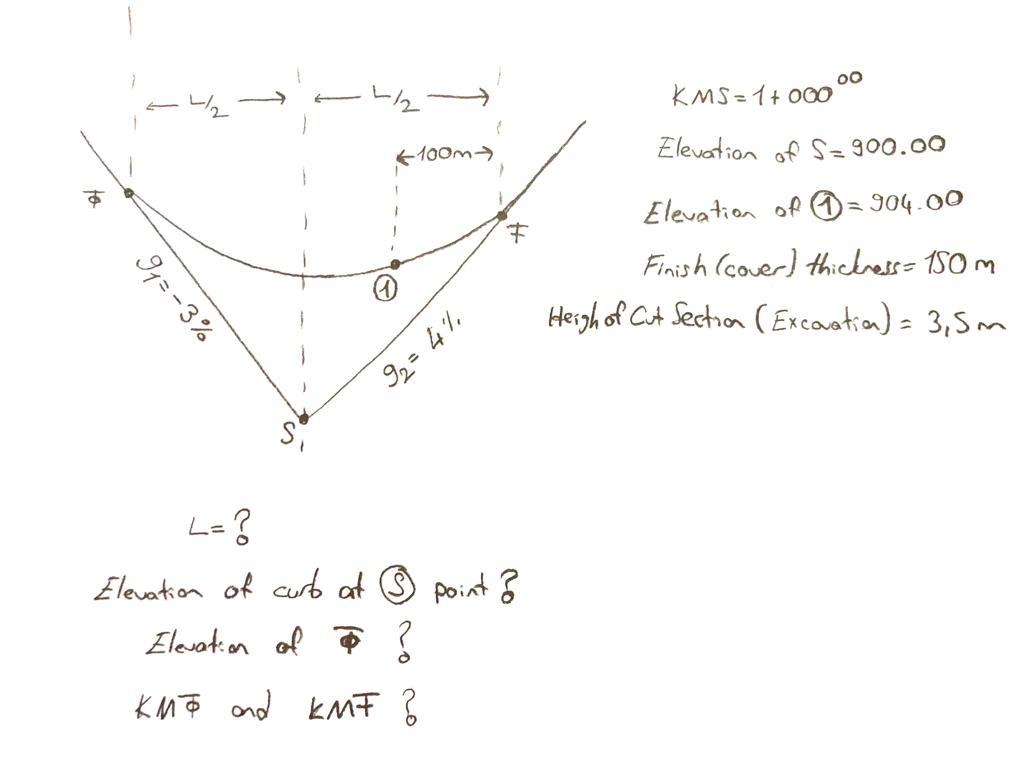 ← L/2 → ← L/2 →
←100m→
Φ
F
①
g1=-3%
g2=4%
S
KMS=1+000⁰⁰
Elevation of S=900.00
Elevation of ①=904.00
Finish (cover) thickness=150 m
Heigh of Cut Section (Excavation) = 3,5m
L=?
Elevation of curb at Ⓢ point?
Elevation of Φ ?
KMΦ and KMF ?